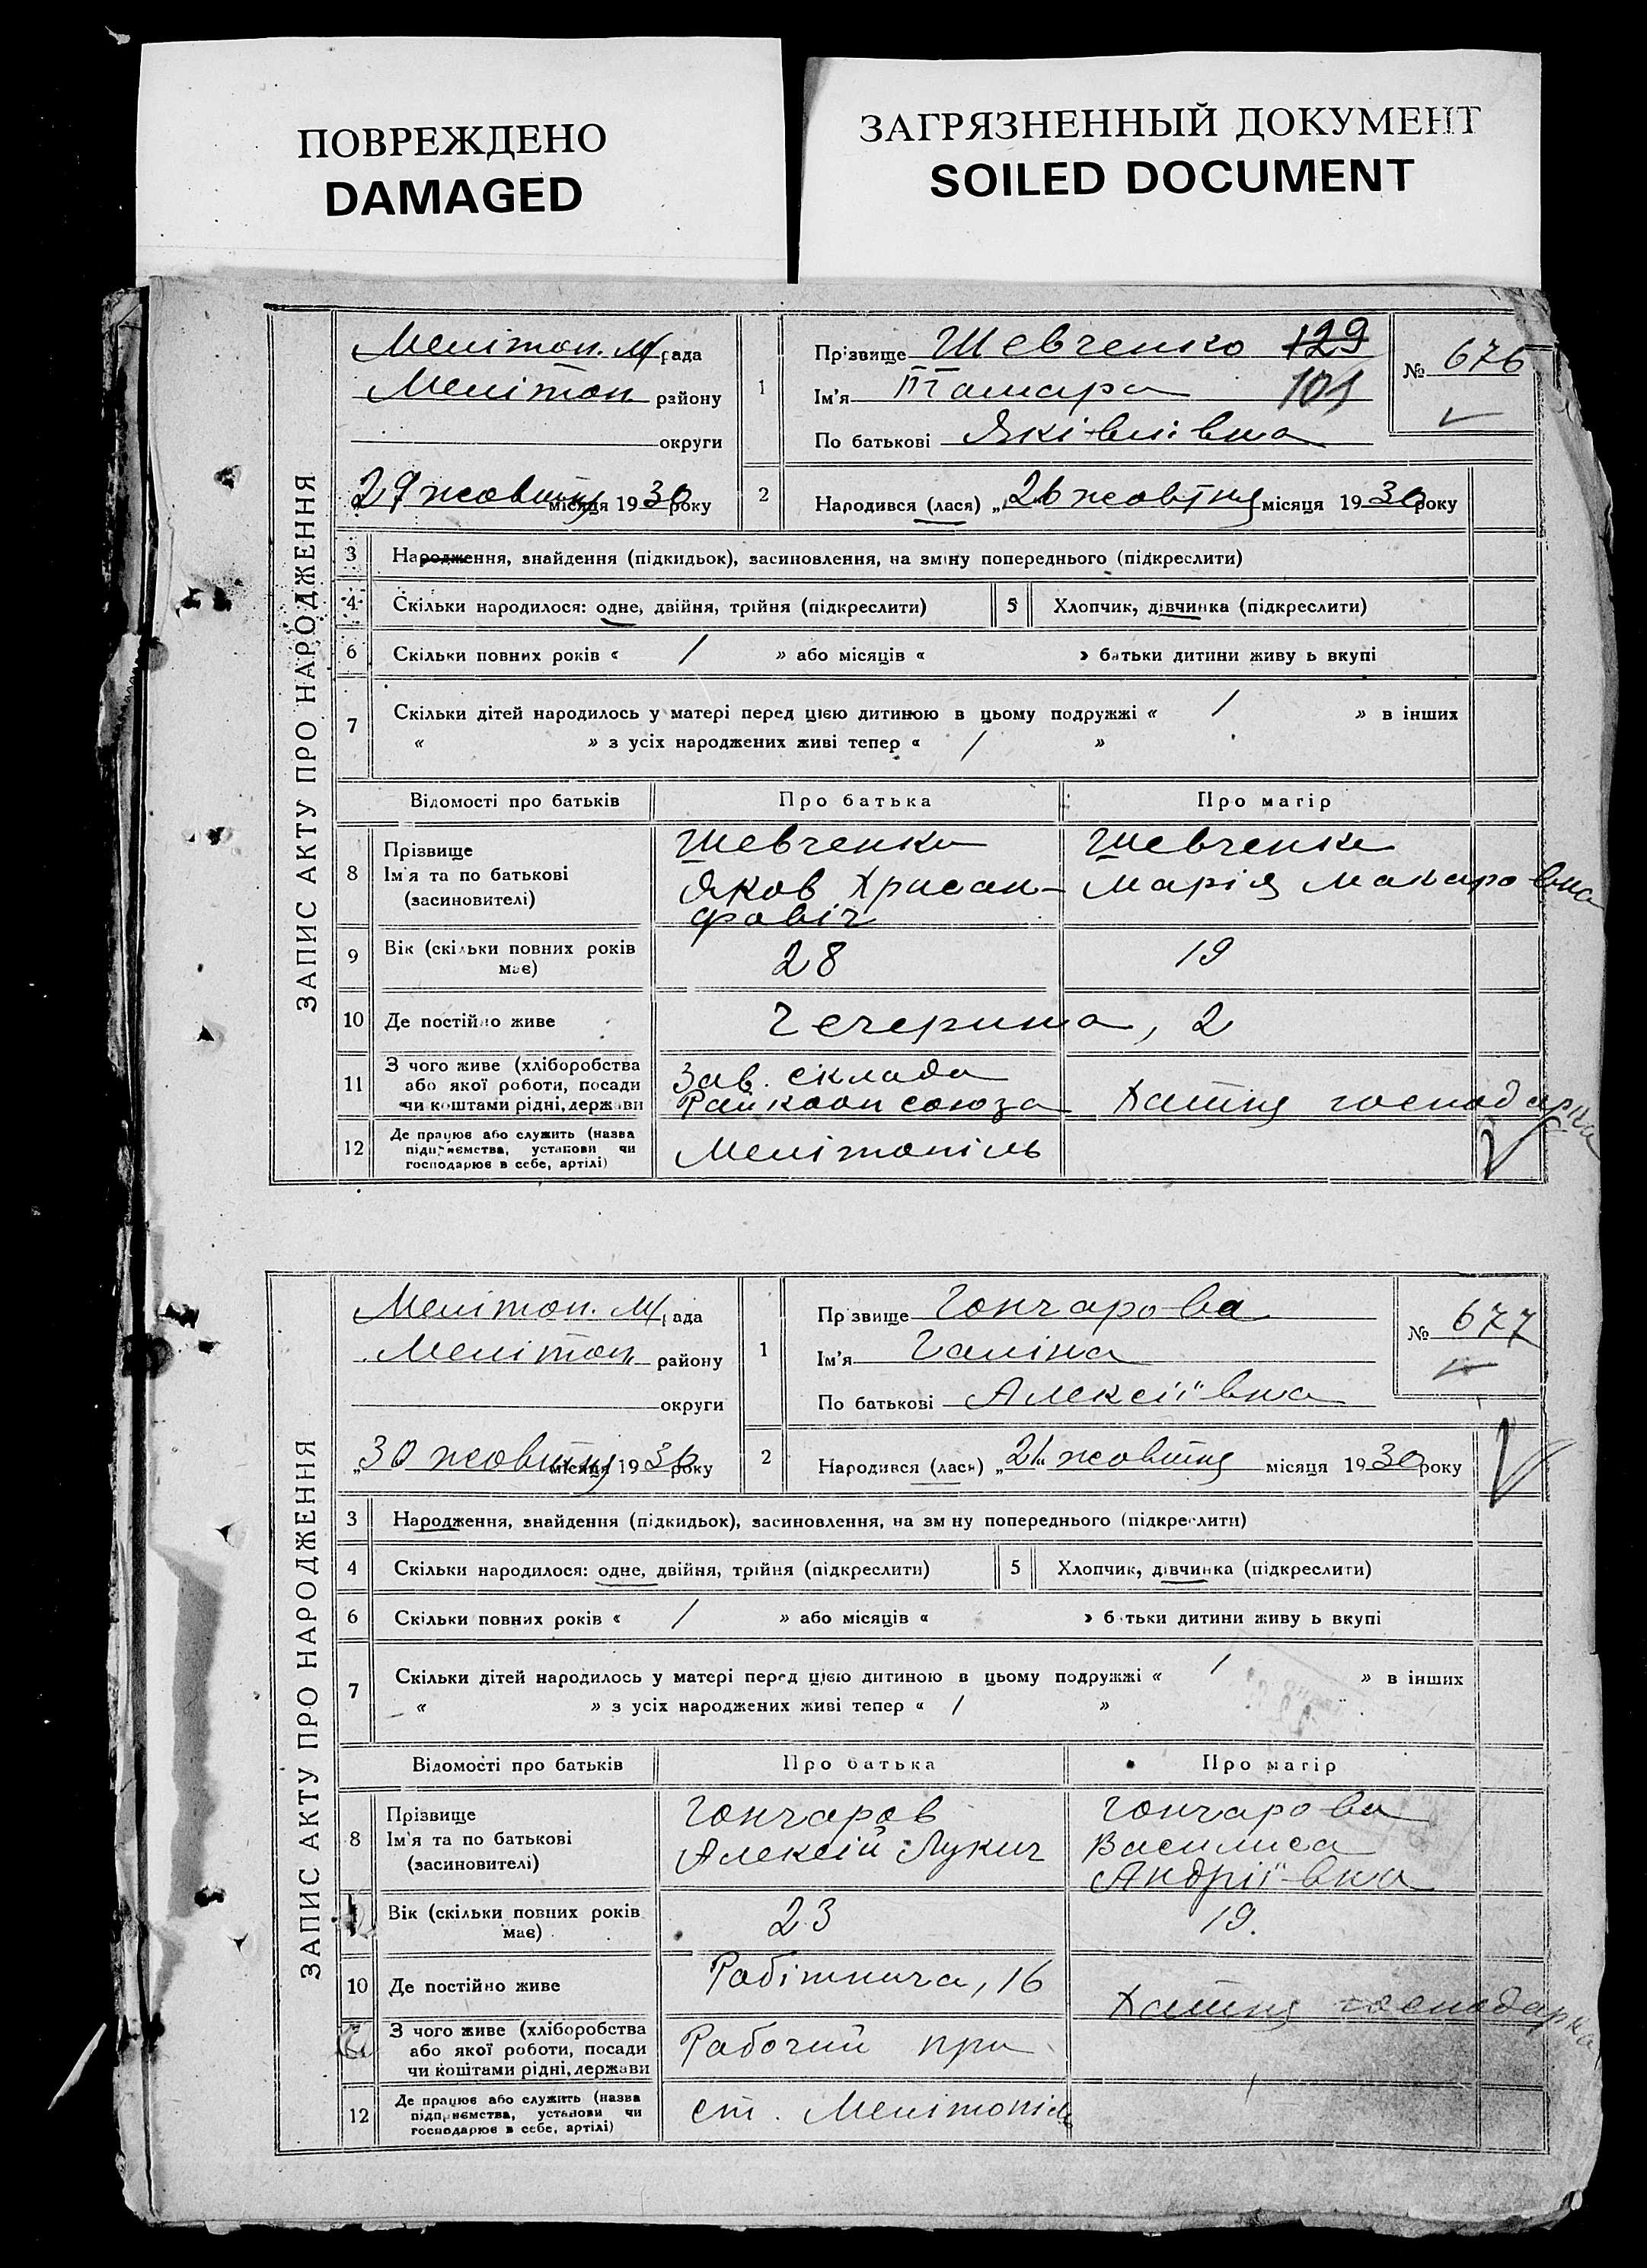 ПОВРЕЖДЕНО
DAMAGED
ЗАГРЯЗНЕННЫЙ ДОКУМЕНТ
SOILED DOCUMENT
ЗАПИС АКТУ ПРО НАРОДЖЕННЯ
Мелітоп. М/рада
Мелітоп. району
округи
29 жовтня місяця 1930 року
1
Прізвище Шевченко 129
Ім'я Тамара 101
По батькові Яківлівна
№ 676
2
Народився (лася) „26 жовтня місяця 1930 року
3 Народження, знайдення (підкидьок), засиновлення, на зміну попереднього (підкреслити)
4 Скільки народилося: одне, двійня, трійня (підкреслити)
5 Хлопчик, дівчинка (підкреслити)
6 Скільки повних років « / » або місяців « » батьки дитини живуть вкупі
7 Скільки дітей народилось у матері перед цією дитиною в цьому подружжі « / » в інших
« » з усіх народжених живі тепер « / »
Відомості про батьків Про батька Про матір
8 Прізвище
Ім'я та по батькові
(засиновителі)
Шевченко
Яков Хрисан-
фовіч
Шевченко
Марія Макаровна
9 Вік (скільки повних років
має)
28
19
10 Де постійно живе
Чечерина, 2
11 З чого живе (хліборобства
або якої роботи, посади
чи коштами рідні, держави
Зав. склада
Райкоопсоюза
Хатня господарка
12 Де працює або служить (назва
підприємства, установи чи
господарює в себе, артілі)
Мелітопіль
ЗАПИС АКТУ ПРО НАРОДЖЕННЯ
Мелітоп. М/рада
Мелітоп. району
округи
„30 жовтня місяця 1930 року
1
Прізвище Гончарова
Ім'я Галіна
По батькові Алексіївна
№ 677
2
Народився (лася) „21 жовтня місяця 1930 року
3 Народження, знайдення (підкидьок), засиновлення, на зміну попереднього (підкреслити)
4 Скільки народилося: одне, двійня, трійня (підкреслити)
5 Хлопчик, дівчинка (підкреслити)
6 Скільки повних років « / » або місяців « » батьки дитини живуть вкупі
7 Скільки дітей народилось у матері перед цією дитиною в цьому подружжі « / » в інших
« » з усіх народжених живі тепер « / »
Відомості про батьків Про батька Про матір
8 Прізвище
Ім'я та по батькові
(засиновителі)
Гончаров
Алексій Лукич
Гончарова
Василиса
Андріївна
Вік (скільки повних років
має)
23
19.
10 Де постійно живе
Работнича, 16
Хатня господарка
З чого живе (хліборобства
або якої роботи, посади
чи коштами рідні, держави
Рабочий при
12 Де працює або служить (назва
підприємства, установи чи
господарює в себе, артілі)
ст. Мелітопіль